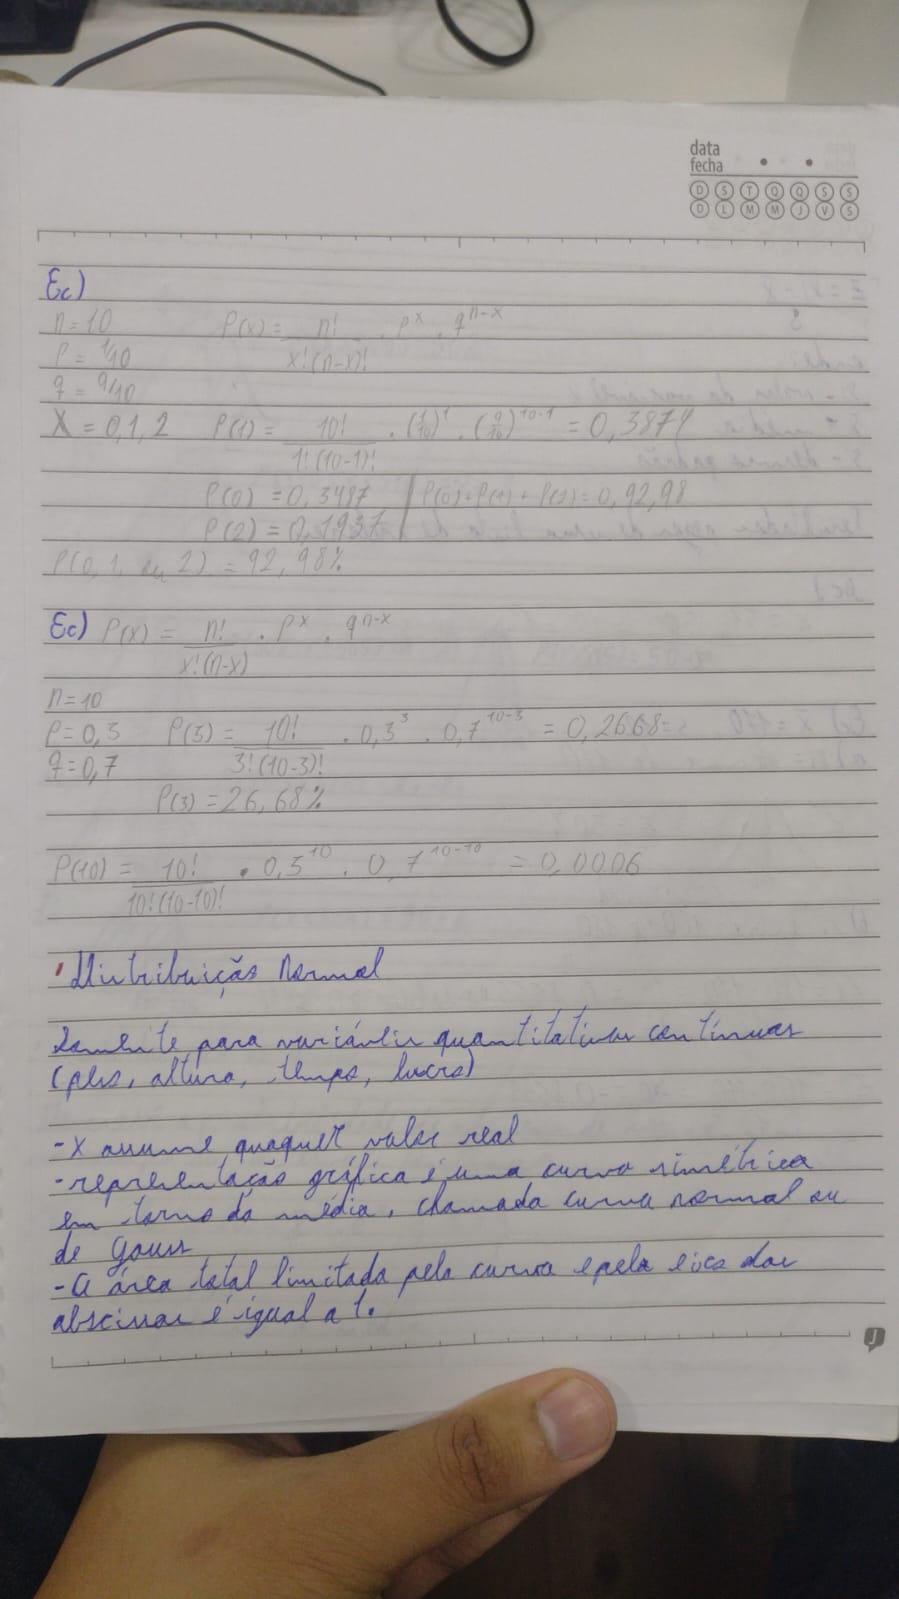 data
fecha
D S T Q Q S S
D L M M J V S
Ec)
n=10 P(x) = n! / x!(n-x)! . p^x . q^n-x
p = 1/10
q = 9/10
X = 0,1,2 P(1) = 10! / 1!(10-1)! . (1/10)^1 . (9/10)^10-1 = 0,3874
P(0) = 0,3487 | P(0)+P(1)+P(2)=0,92,98
P(2) = 0,1937
P(0,1, ou 2) = 92,98%
Ec) P(x) = n! / x!(n-x) . p^x . q^n-x
n=10
p=0,3 P(3) = 10! / 3!(10-3)! . 0,3^3 . 0,7^10-3 = 0,2668=
q=0,7
P(3) = 26,68%
P(10) = 10! / 10!(10-10)! . 0,3^10 . 0,7^10-10 = 0,0006
Distribuição Normal
Somente para variáveis quantitativas contínuas
(peso, altura, tempo, lucro)
-x assume quaquer valor real
-representação gráfica é uma curva simétrica
em torno da média, chamada curva normal ou
de Gauss
-a área total limitada pela curva e pelo eixo das
abscissas é igual a 1.